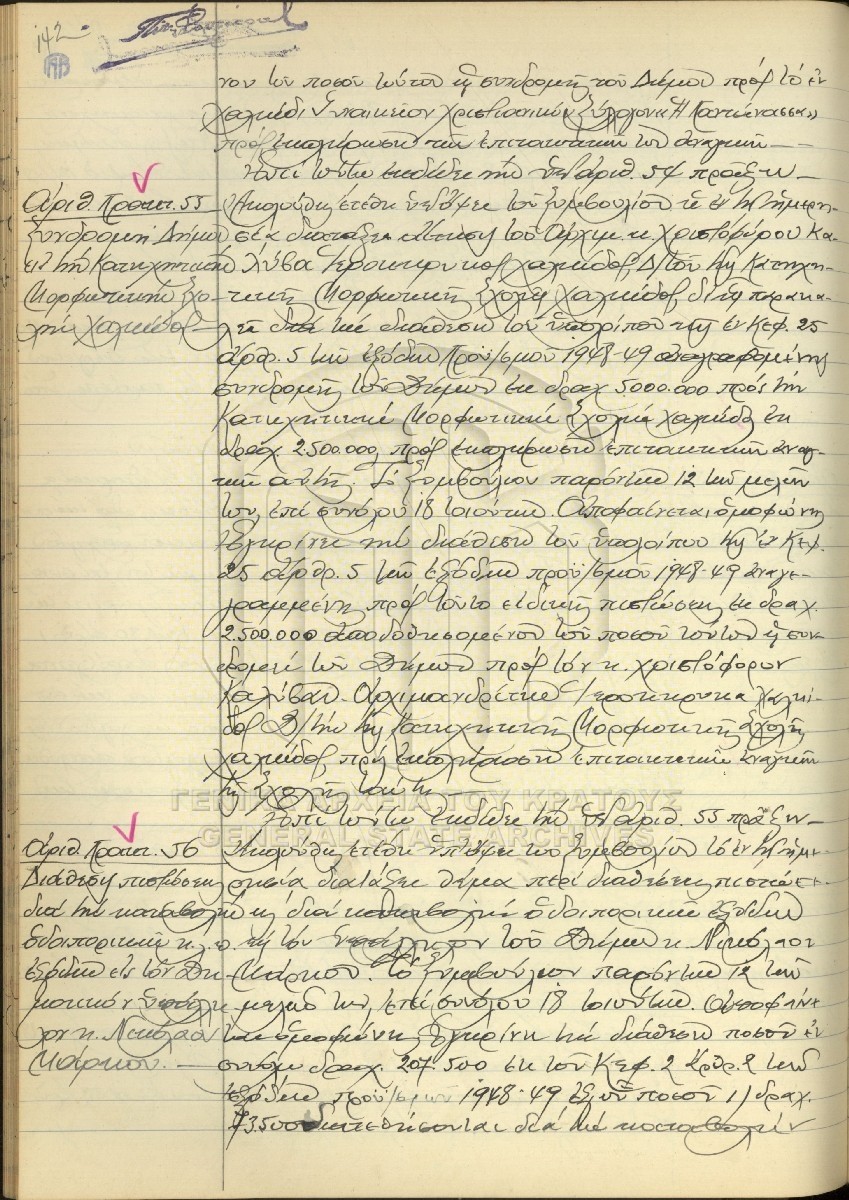 142
νον των ποσόν τούτον ως συνδρομήν του Δήμου προς το εν
Χαλκίδι Γυναικείον Χριστιανικόν Σύλλογον "Η Παντάνασσα"
προς εκπλήρωσιν των επιτακτικών του αναγκών
Επί τούτω εκδίδει την υπ' αριθ. 54 πράξιν
Αριθ. Πρακτ. 55
Συνδρομή Δήμου
εις την Κατηχητικήν
Μορφωτικήν Σχο-
λήν Χαλκίδος
Ακολούθως ετέθη υπ' όψει του Συμβουλίου η εν τη ημερη-
σία διατάξει αίτησις του Αρχιμ. κ. Χριστοφόρου Κα-
λύβα Ιεροκήρυκος Χαλκίδος Δ/του της Κατηχη-
τικής Μορφωτικής Σχολής Χαλκίδος δι' ης παρακα-
λεί διά την διάθεσιν του υπολοίπου της εν Κεφ. 25
άρθρ. 5 των εξόδων Προϋ/σμού 1948-49 αναγραφομένης
συνδρομής του Δήμου εκ δραχ. 5.000.000 προς την
Κατηχητικήν Μορφωτικήν Σχολήν Χαλκίδος εκ
δραχ. 2.500.000 προς εκπλήρωσιν επιτακτικών αναγ-
κών αυτής. Το Συμβούλιον παρόντων 12 των μελών
του, επί συνόλου 18 τοιούτων. Αποφαίνεται ομοφώνως
Εγκρίνει την διάθεσιν του υπολοίπου της εν Κεφ.
25 άρθρ. 5 των εξόδων προϋ/σμού 1948-49 αναγε-
γραμμένης προς τούτο ειδικής πιστώσεως εκ δραχ.
2.500.000 αποδοθησομένου του ποσού τούτου ως συν-
δρομή του Δήμου προς τον κ. Χριστόφορον
Καλύβαν Αρχιμανδρίτην Ιεροκήρυκα Χαλκί-
δος Δ/την της Κατηχητικής Μορφωτικής Σχολής
Χαλκίδος προς εκπλήρωσιν επιτακτικών αναγκών
της Σχολής ταύτης
Επί τούτω εκδίδει την υπ' αριθ. 55 πράξιν
Αριθ. Πρακτ. 56
Διάθεσις πιστώσεως
διά την καταβολήν
οδοιπορικών κ.λ.π.
εξόδων εις τον Δη-
μοτικόν υπάλλη-
λον κ. Νικόλαον
Μάρκου.
Ακολούθως ετέθη υπ' όψει του Συμβουλίου το εν τη ημε-
ρησία διατάξει θέμα περί διαθέσεως πιστώσε-
ως διά καταβολήν οδοιπορικών εξόδων
εις τον υπάλληλον του Δήμου κ. Νικόλαον
Μάρκου. Το Συμβούλιον παρόντων 12 των
μελών του, επί συνόλου 18 τοιούτων. Αποφαίνε-
ται ομοφώνως Εγκρίνει την διάθεσιν ποσού εν
συνόλω δραχ. 207.500 εκ του Κεφ. 2 άρθρ. 2 των
εξόδων προϋ/σμού 1948-49 εξ ων ποσόν 1) δραχ.
73.500 διατεθήσονται διά την καταβολήν
ΓΕΝΙΚΑ ΑΡΧΕΙΑ ΤΟΥ ΚΡΑΤΟΥΣ
GENERAL STATE ARCHIVES